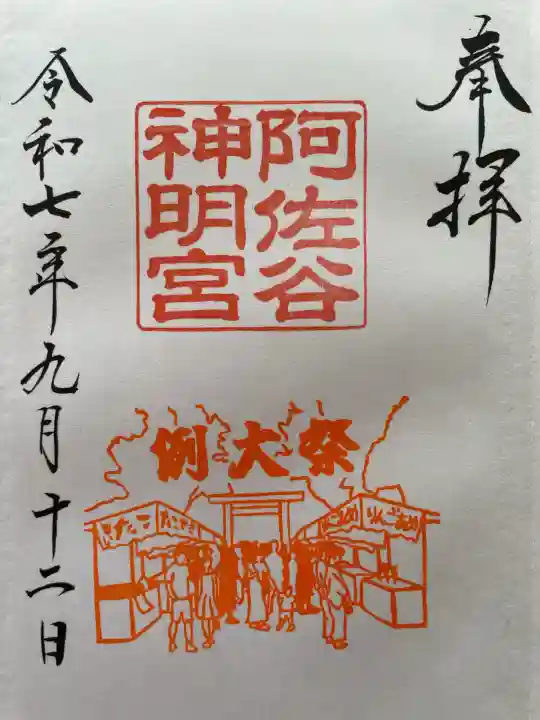 奉拝
阿佐谷
神明宮
例大祭
りんごあめ
令和七年九月十二日